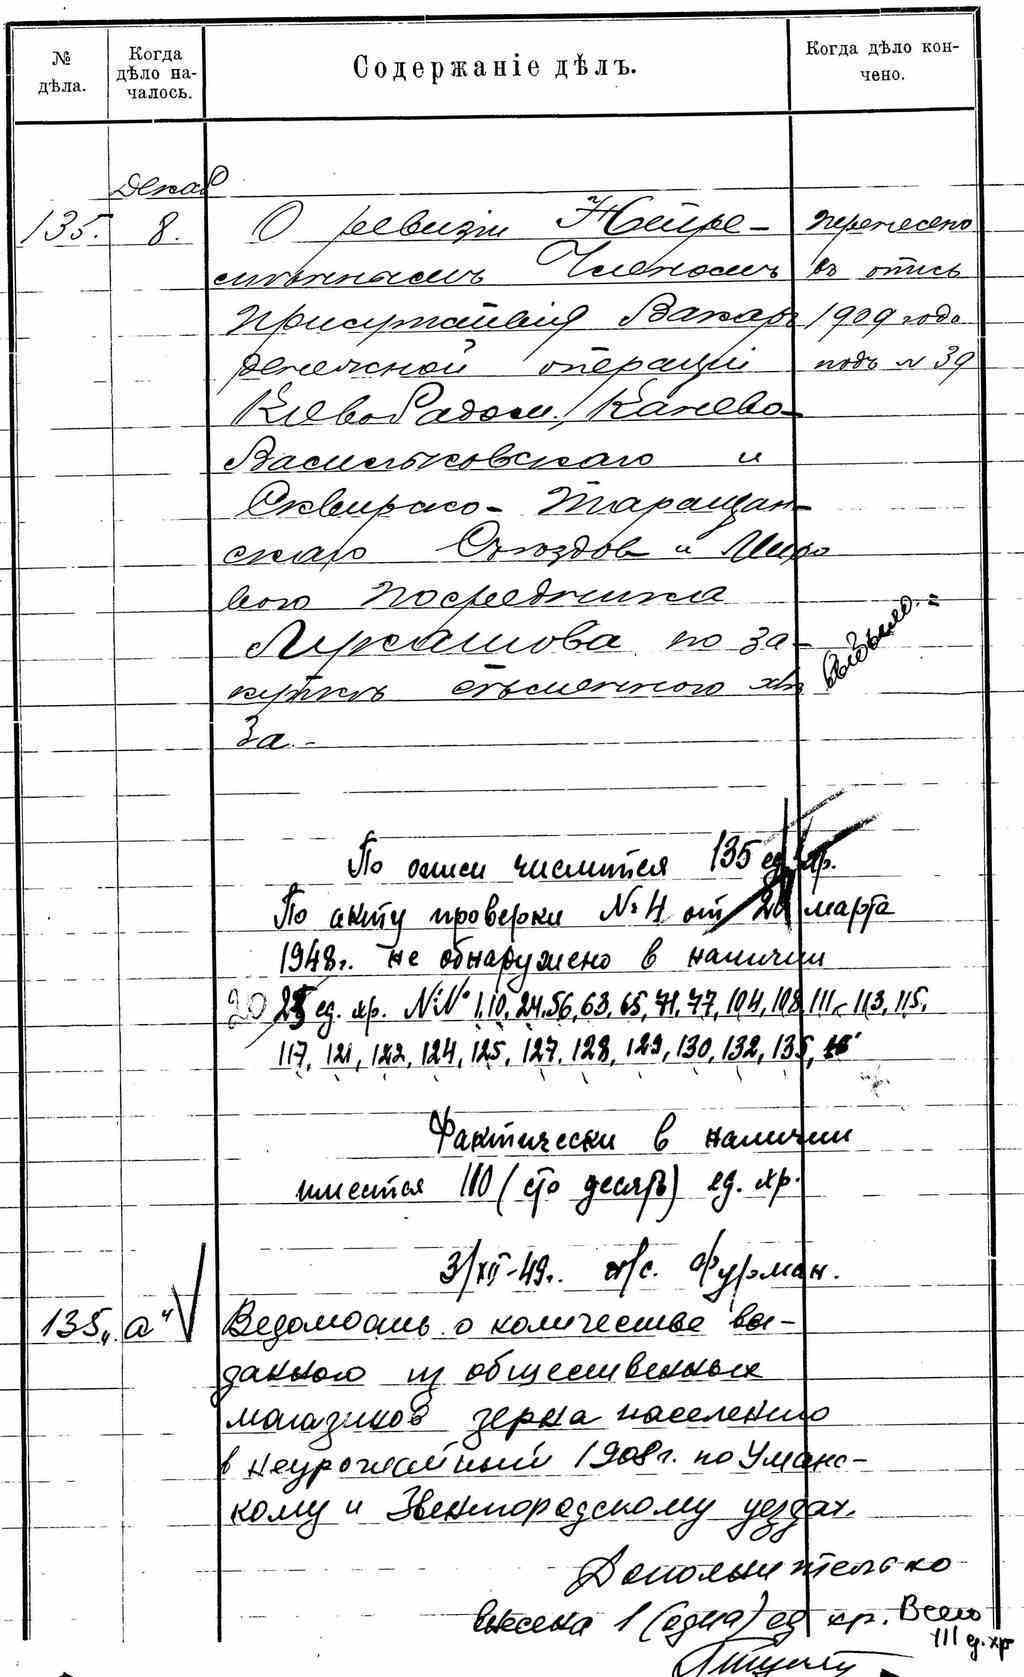 № дѣла.
Когда дѣло на-чалось.
Содержаніе дѣлъ.
Когда дѣло кон-чено.
Декаб
135. 8. О ревизіи Непре-
мѣннымъ Членомъ
Присутствія Вакаръ
денежной операціи
Кіево Радом. Канево-
Васильковскаго и
Сквирско-Таращан-
скаго Съѣздов и Миро
вого Посредника
Лукашова по за-
купкѣ сѣменного хлѣ
ба.-
перенесено
въ опись
1909 года
подъ № 39
Выбыло.=
По описи числится 135 ед. хр.
По акту проверки № 4 от 20 марта
1948г. не обнаружено в наличии
20 25 ед. хр. №№ 1, 10, 24, 56, 63, 65, 71, 77, 104, 108, 111, 113, 115,
117, 121, 122, 124, 125, 127, 128, 129, 130, 132, 135,
Фактически в наличии
имеется 110 (сто десять) ед. хр.
3/XII-49г. н/с. Фурман.
135 „а“ Ведомость о количестве вы-
данного из общественных
магазинов зерна населению
в неурожайный 1908 г. по Уманс-
кому и Звенигородскому уездах.
Дополнительно
внесена 1 (одна) ед. хр. Всего
111 ед. хр